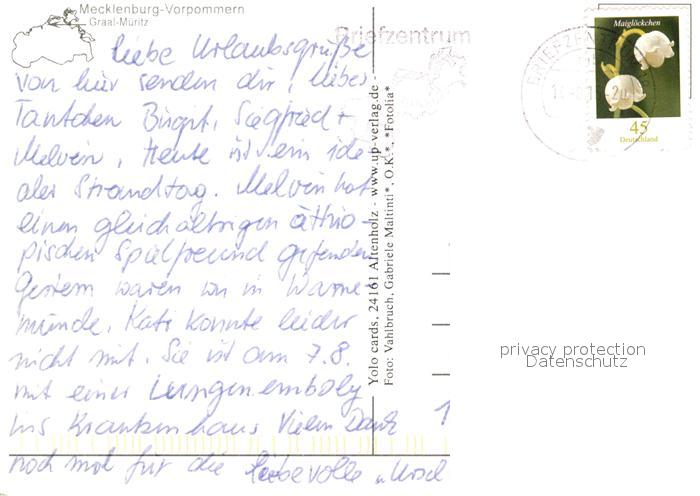 Mecklenburg-Vorpommern
Graal-Müritz
liebe Urlaubsgrüße
von hier senden dir, liebes
Tantchen Birgit, Siegfried +
Melvin. Heute ist ein ide
aler Strandtag. Melvin hat
einen gleichaltrigen äthio-
pischen Spielfreund gefunden
Gestern waren wir in Warne-
münde. Kati konnte leider
nicht mit. Sie ist am 7.8.
mit einer Lungenemboly
ins Krankenhaus Vielen Dank
noch mal für die liebevolle
Yolo cards, 24161 Altenholz - www.up-verlag.de -
Foto: Vahlbruch, Gabriele Maltinti*, O.K.*, *Fotolia*
Briefzentrum
BRIEFZEN
Maiglöckchen
45
Deutschland
privacy protection
Datenschutz